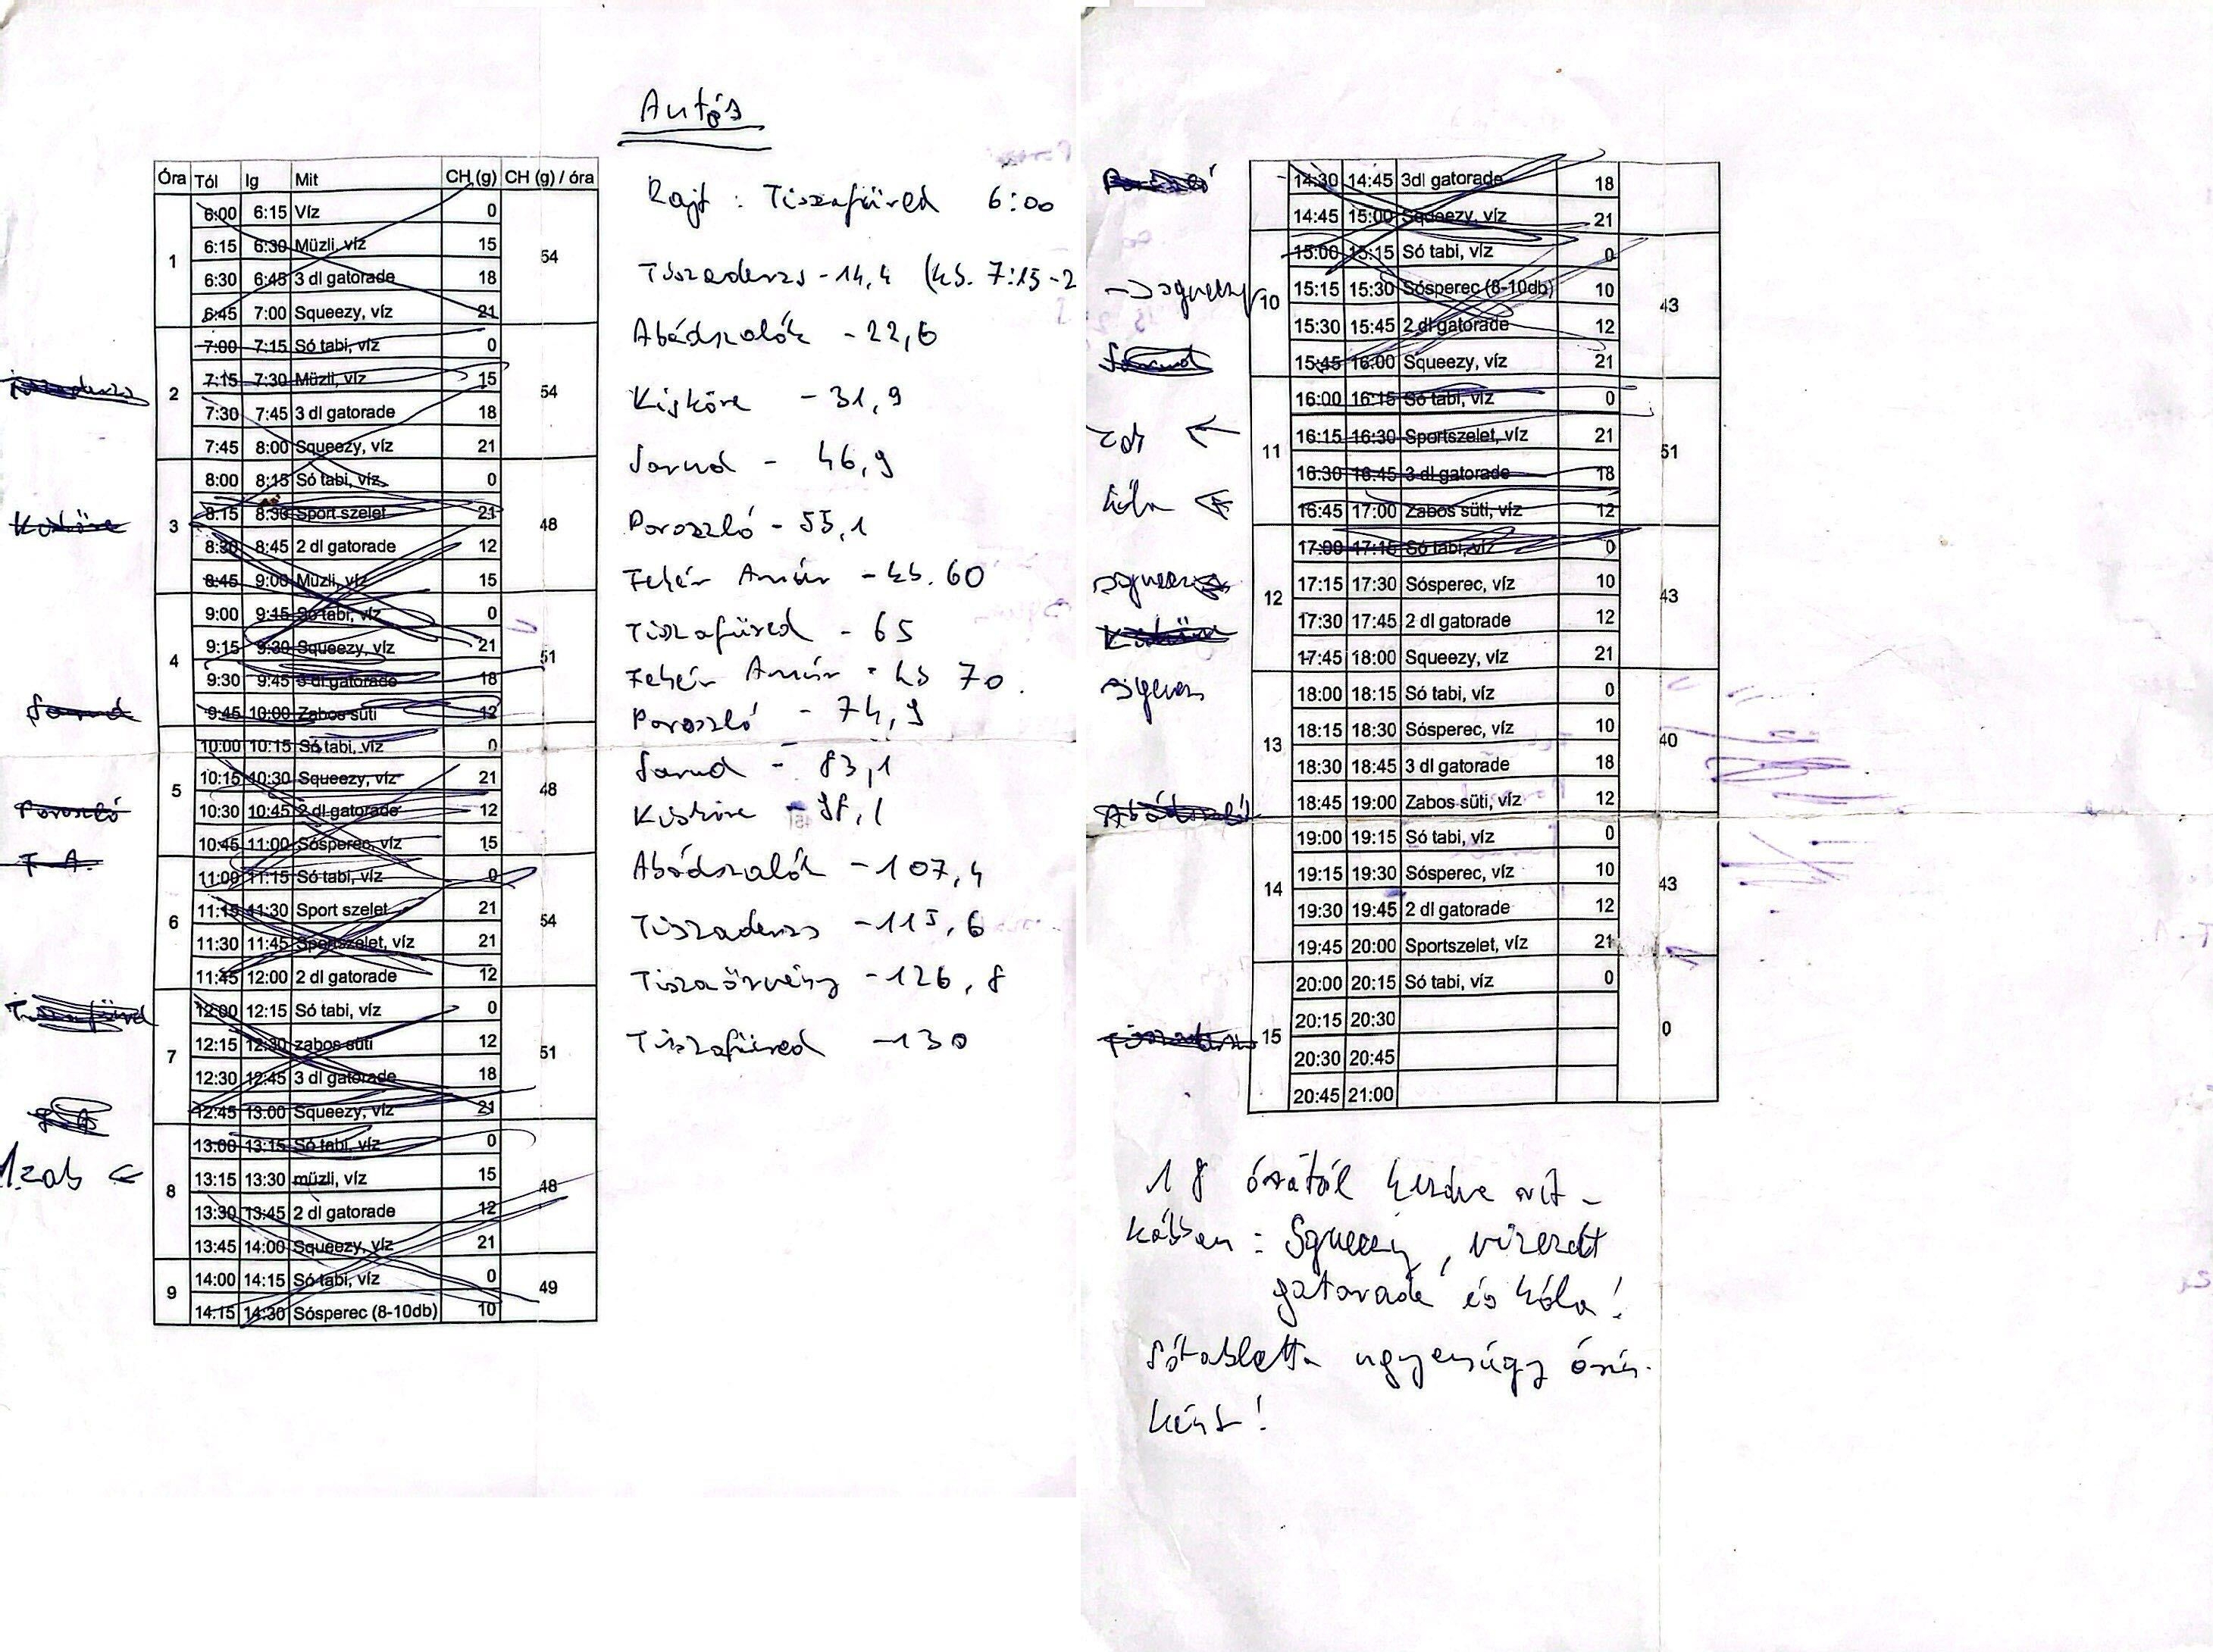 Autós
Óra Tól Ig Mit CH (g) CH (g) / óra
1 54
6:00 6:15 Víz 0
6:15 6:30 Müzli, víz 15
6:30 6:45 3 dl gatorade 18
6:45 7:00 Squeezy, víz 21
2 54
7:00 7:15 Só tabi, víz 0
7:15 7:30 Müzli, víz 15
7:30 7:45 3 dl gatorade 18
7:45 8:00 Squeezy, víz 21
3 48
8:00 8:15 Só tabi, víz 0
8:15 8:30 Sport szelet 21
8:30 8:45 2 dl gatorade 12
8:45 9:00 Müzli, víz 15
4 51
9:00 9:15 Só tabi, víz 0
9:15 9:30 Squeezy, víz 21
9:30 9:45 3 dl gatorade 18
9:45 10:00 Zabos süti 12
5 48
10:00 10:15 Só tabi, víz 0
10:15 10:30 Squeezy, víz 21
10:30 10:45 2 dl gatorade 12
10:45 11:00 Sósperec, víz 15
6 54
11:00 11:15 Só tabi, víz 0
11:15 11:30 Sport szelet 21
11:30 11:45 Sportszelet, víz 21
11:45 12:00 2 dl gatorade 12
7 51
12:00 12:15 Só tabi, víz 0
12:15 12:30 zabos süti 12
12:30 12:45 3 dl gatorade 18
12:45 13:00 Squeezy, víz 21
8 48
13:00 13:15 Só tabi, víz 0
13:15 13:30 müzli, víz 15
13:30 13:45 2 dl gatorade 12
13:45 14:00 Squeezy, víz 21
9 49
14:00 14:15 Só tabi, víz 0
14:15 14:30 Sósperec (8-10db) 10
Tiszaderzs
Kisköre
Sarud
Poroszló
F. A.
Tiszafüred
F. A.
1 zab ←
Rajt : Tiszafüred 6:00
Tiszaderzs - 14,4 (kb. 7:15-2
Abádszalók - 22,6
Kisköre - 31,9
Sarud - 46,9
Poroszló - 55,1
Fehér Amúr - kb. 60
Tiszafüred - 65
Fehér Amúr - kb 70.
Poroszló - 74,9
Sarud - 83,1
Kisköre - 98,1
Abádszalók - 107,4
Tiszaderzs - 115,6
Tiszaörvény - 126,8
Tiszafüred - 130
14:30 14:45 3dl gatorade 18
14:45 15:00 Squeezy, víz 21
10 43
15:00 15:15 Só tabi, víz 0
15:15 15:30 Sósperec (8-10db) 10
15:30 15:45 2 dl gatorade 12
15:45 16:00 Squeezy, víz 21
11 51
16:00 16:15 Só tabi, víz 0
16:15 16:30 Sportszelet, víz 21
16:30 16:45 3 dl gatorade 18
16:45 17:00 Zabos süti, víz 12
12 43
17:00 17:15 Só tabi, víz 0
17:15 17:30 Sósperec, víz 10
17:30 17:45 2 dl gatorade 12
17:45 18:00 Squeezy, víz 21
13 40
18:00 18:15 Só tabi, víz 0
18:15 18:30 Sósperec, víz 10
18:30 18:45 3 dl gatorade 18
18:45 19:00 Zabos süti, víz 12
14 43
19:00 19:15 Só tabi, víz 0
19:15 19:30 Sósperec, víz 10
19:30 19:45 2 dl gatorade 12
19:45 20:00 Sportszelet, víz 21
15 0
20:00 20:15 Só tabi, víz 0
20:15 20:30
20:30 20:45
20:45 21:00
Poroszló
→ squeezy
Sarud
←
kóla ←
Kisköre
Abádszalók
Tiszaderzs
18 órától kezdve rit-
kábban : Squeezy, vizezett
gatorade és kóla!
Sótabletta ugyanúgy órán-
ként!